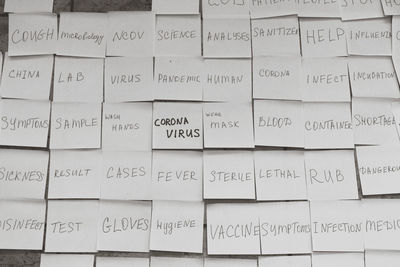 COUGH microbology NCOV SCIENCE ANALYSES SANITIZER HELP
CHINA LAB VIRUS PANDEMIC HUMAN CORONA INFECT INCUBATION
SYMPTOMS SAMPLE WASH HANDS CORONA VIRUS WEAR MASK BLOOD CONTAINER
SICKNESS RESULT CASES FEVER STERILE LETHAL RUB DANGEROUS
DISINFECT TEST GLOVES HYGIENE VACCINE SYMPTOMS INFECTION